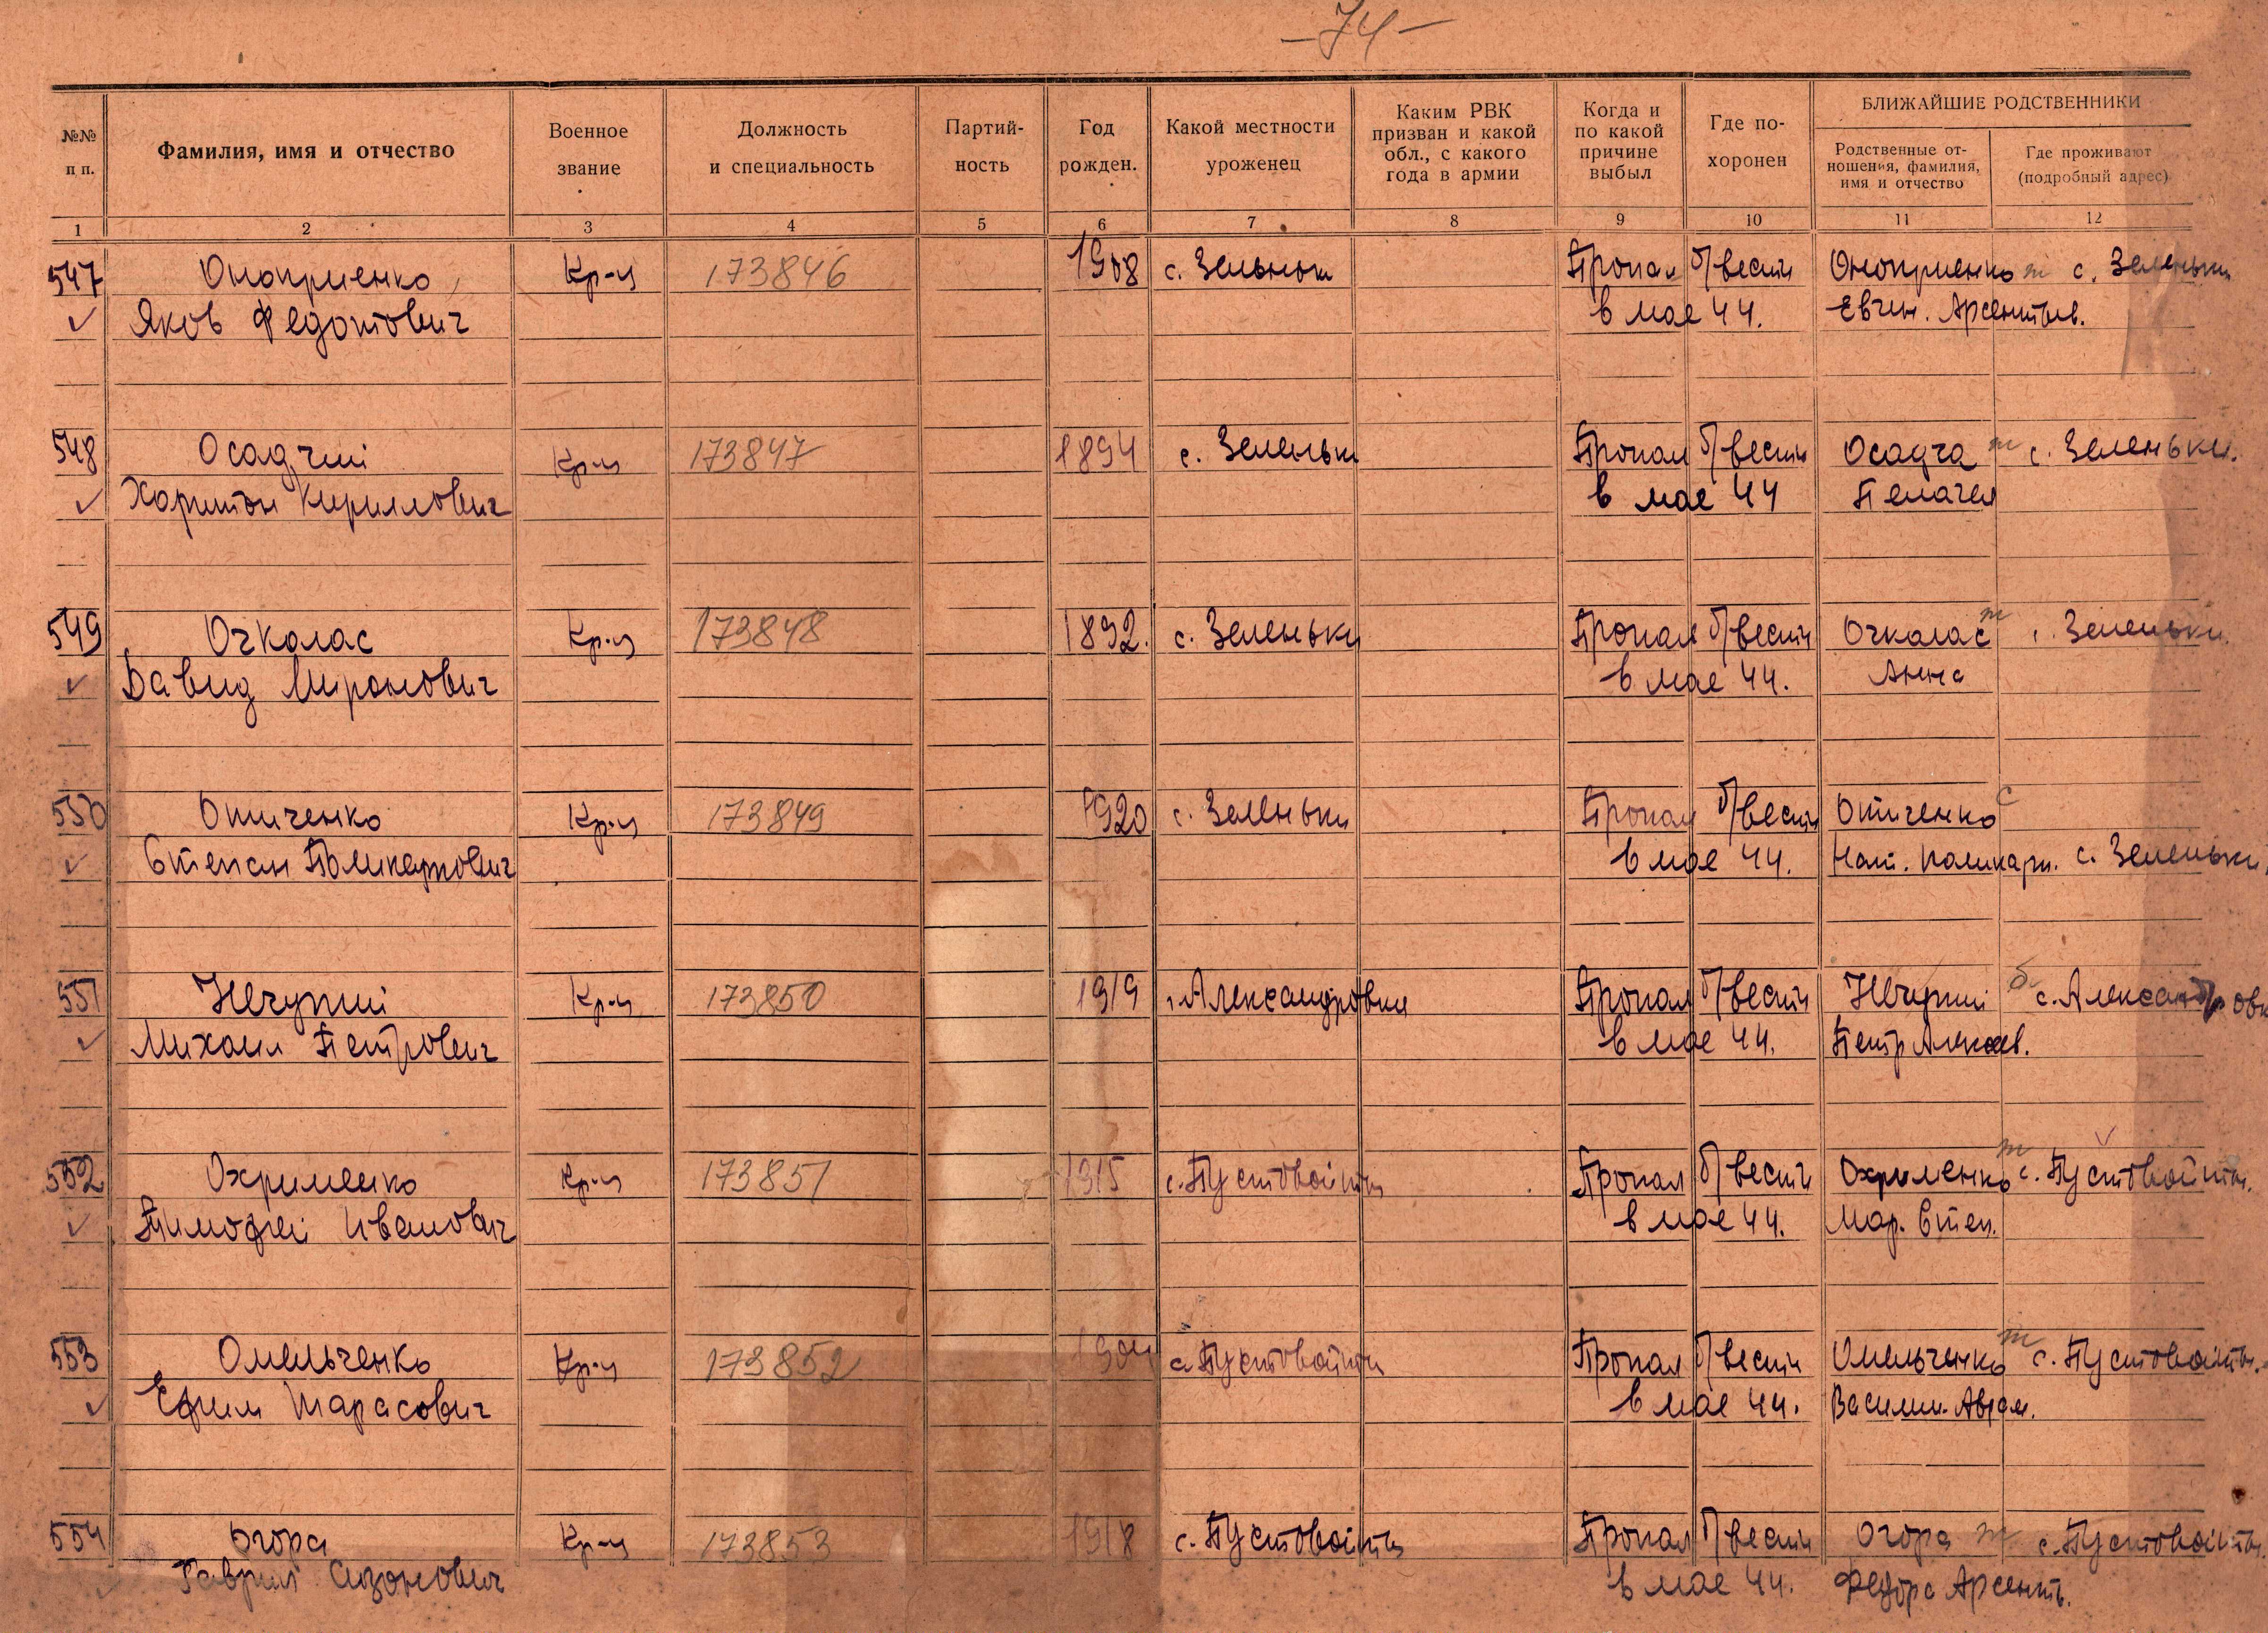 -74-
№№ п п.
Фамилия, имя и отчество
Военное звание
Должность и специальность
Партий-ность
Год рожден.
Какой местности уроженец
Каким РВК призван и какой обл., с какого года в армии
Когда и по какой причине выбыл
Где по-хоронен
БЛИЖАЙШИЕ РОДСТВЕННИКИ
Родственные от-ношения, фамилия, имя и отчество
Где проживают (подробный адрес)
1 2 3 4 5 6 7 8 9 10 11 12
547 Оноприенко Кр-ц 173846 1908 с. Зеленьки Пропал б/вести Оноприенко т с. Зеленьки
Яков Федотович в мае 44. Евген. Арсентьев.
548 Осадчий Кр-ц 173847 1894 с. Зеленьки Пропал б/вести Осадча т с. Зеленьки.
Харитон Кириллович в мае 44 Пелагея
549 Очколас Кр-ц 173848 1892. с. Зеленьки Пропал б/вести Очколас т с. Зеленьки.
Давид Миронович в мае 44. Анна
550 Отиченко Кр-ц 173849 1920 с. Зеленьки Пропал б/вести Отиченко с
Степан Поликарпович в мае 44. Нат. Поликарп. с. Зеленьки
551 Нечупий Кр-ц 173850 1919 Александровка Пропал б/вести Нечупий б с. Александровк
Михаил Петрович в мае 44. Петр Алексеев.
552 Охрименко Кр-ц 173851 1915 с. Пустовойты Пропал б/вести Охрименко т с. Пустовойты.
Тимофей Иванович в мае 44. Мар. Степ.
553 Омельченко Кр-ц 173852 1904 с. Пустовойты Пропал б/вести Омельченко т с. Пустовойты.
Ефим Тарасович в мае 44. Васили. Аврам.
554 Огора Кр-ц 173853 1918 с. Пустовойты Пропал б/вести Огора т с. Пустовойты.
Гаврил Сизонович в мае 44. Федора Арсенть.